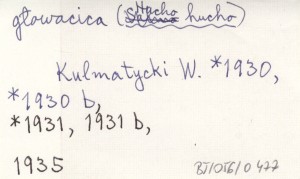 głowacica (Hucho hucho)
Kulmatycki W. *1930,
*1930 b,
*1931, 1931 b,
1935
BJ/OTG/0477